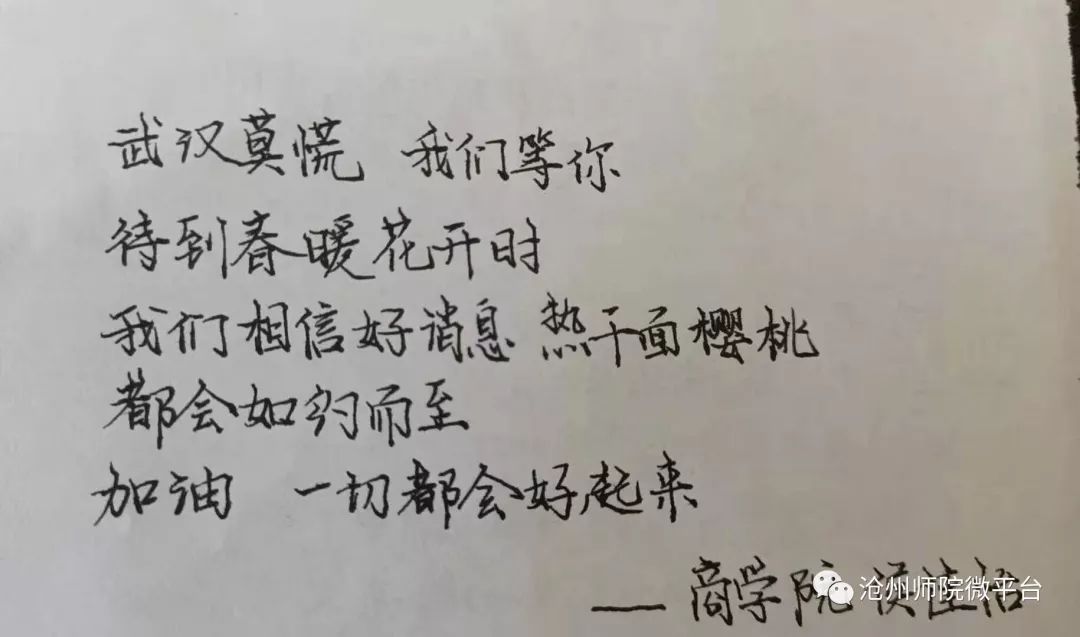 武汉莫慌 我们等你
待到春暖花开时
我们相信好消息 热干面樱桃
都会如约而至
加油 一切都会好起来
——商学院
沧州师院微平台